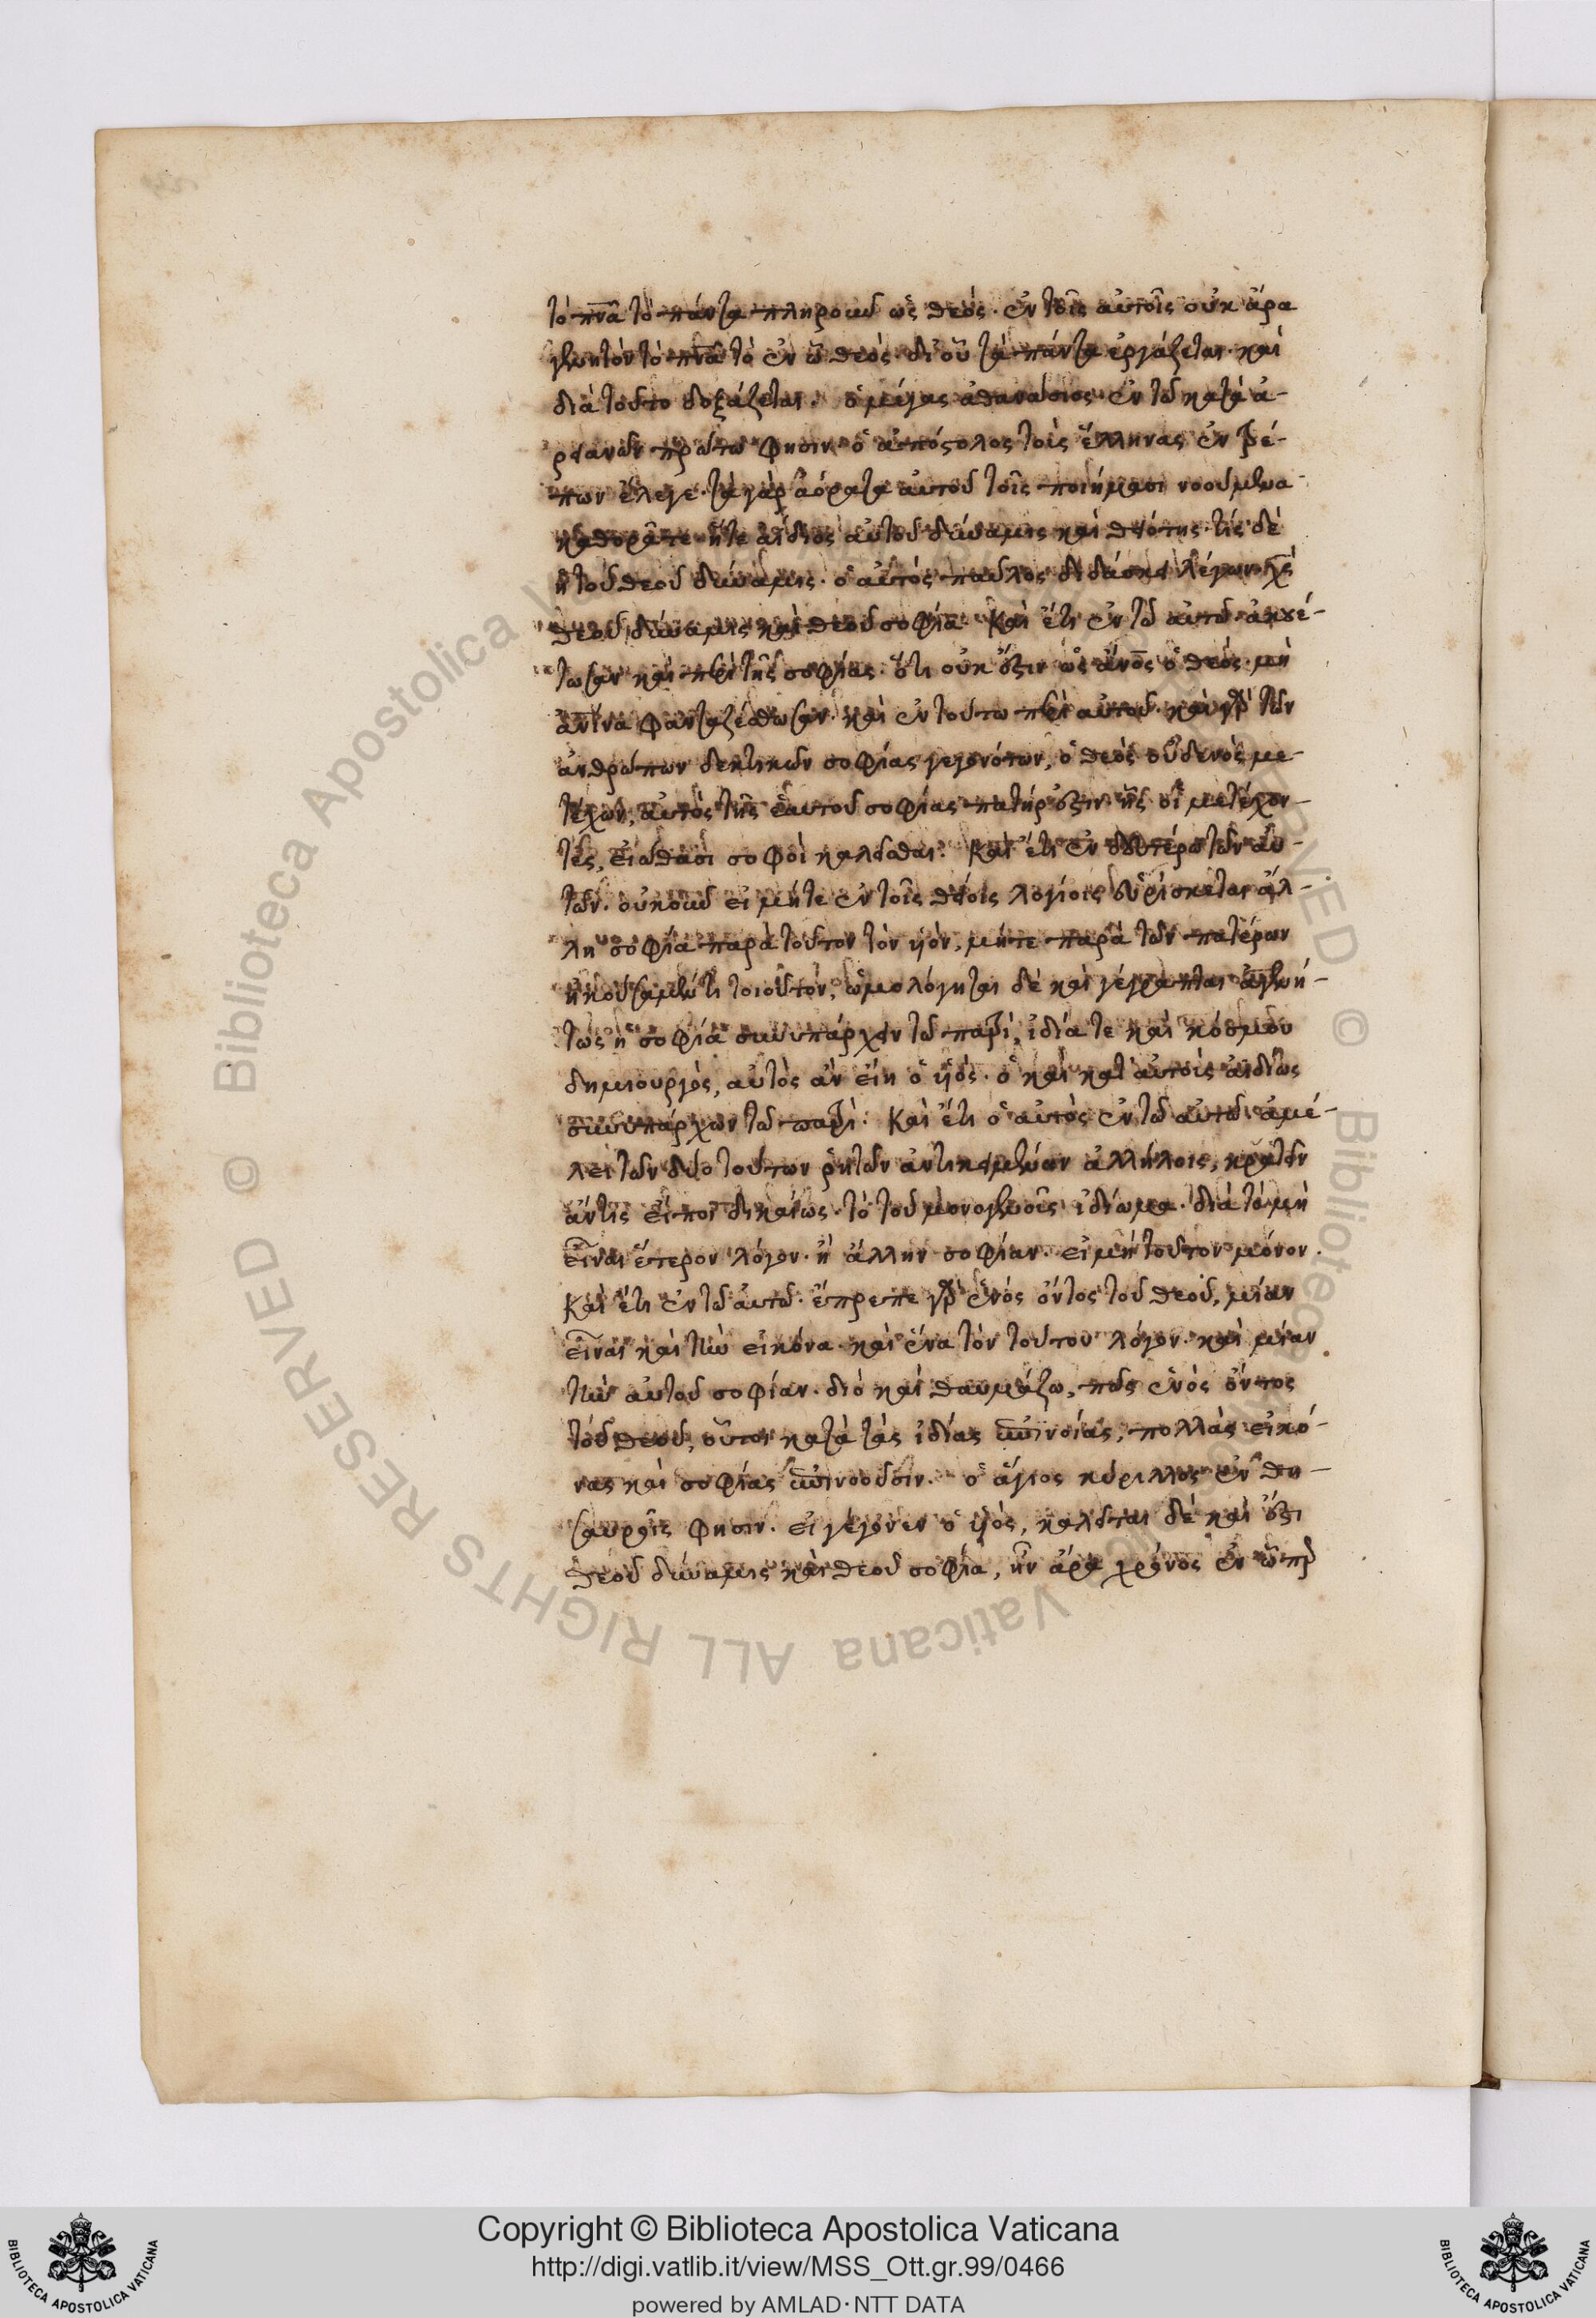 τὸ πνᾶ τὸ πάντα πληροῦν ὡς θεός· ἐν τοῖς αὐτοῖς οὐκ ἄρα
γενητὸν τὸ πνᾶ τὸ ἐν ὧ θεὸς· δι' οὗ τὰ πάντα ἐργάζεται· καὶ
διὰ τοῦτο δοξάζεται. ὁ μέγας ἀθανάσιος ἐν τῶ κατὰ ἀ-
ρειανῶν πρώτω φησιν· ὁ ἀπόστολος τοὺς ἕλληνας ἐντρέ-
πων ἔλεγε· τὰ γὰρ ἀόρατα αὐτοῦ τοῖς ποιήμασι νοούμενα
καθορᾶται ἥτε ἀΐδιος αὐτοῦ δύναμις καὶ θειότης· τίς δὲ
ἡ τοῦ θεοῦ δύναμις· ὁ αὐτὸς παῦλος διδάσκει λέγων· χς
θεοῦ δύναμις καὶ θεοῦ σοφία. Καὶ ἔτι ἐν τῶ αὐτῶ·
τωσαν καὶ περὶ τῆς σοφίας· ὅτι οὐκ ἔστιν ὡς ἄνος ὁ θεός· μὴ
ἀνινα φανταζέσθωσαν· καὶ ἐν τούτω περὶ αὐτοῦ· καὶ γὰρ τῶν
ἀνθρώπων δεκτικῶν σοφίας γεγονότων, ὁ θεὸς οὐδενὸς με-
τέχων, αὐτὸς τῆς ἑαυτοῦ σοφίας πατήρ ἐστιν· ἧς οἱ μετέχον-
τες, εἰώθασι σοφοὶ καλεῖσθαι. Καὶ ἔτι ἐν δευτέρω τῶν αὐ-
τῶν· οὐκοῦν εἰ μήτε ἐν τοῖς θείοις λογίοις εὑρίσκεται ἄλ-
λη σοφία παρὰ τοῦτον τὸν υἱόν, μήτε παρὰ τῶν πατέρων
ἠκούσαμέν τι τοιοῦτον, ὡμολόγηται δὲ καὶ γέγραπται ἀγενή-
τως ἡ σοφία συνυπάρχειν τῶ πατρὶ, ἰδία τε καὶ κόσμου
δημιουργός, αὐτὸς ἂν εἴη ὁ υἱός· ὁ καὶ κατ' αὐτοὺς ἀϊδίως
συνυπάρχων τῶ πατρὶ. Καὶ ἔτι ὁ αὐτὸς ἐν τῶ αὐτῶ· ἀμέ-
λει τῶν δύο τούτων ῥητῶν ἀντικειμένων ἀλλήλοις, κρατεῖν
ἄν τις εἴποι δικαίως· τὸ τοῦ μονογενοῦς ἰδίωμα· διὰ τὸ μὴ
εἶναι ἕτερον λόγον· ἢ ἄλλην σοφίαν· εἰ μὴ τοῦτον μόνον.
Καὶ ἔτι ἐν τῶ αὐτῶ· ἔπρεπε γὰρ ἑνὸς ὄντος τοῦ θεοῦ, μίαν
εἶναι καὶ τὴν εἰκόνα· καὶ ἕνα τὸν τούτου λόγον· καὶ μίαν
τὴν αὐτοῦ σοφίαν· διὸ καὶ θαυμάζω, πῶς ἑνὸς ὄντος
τοῦ θεοῦ, οὗτοι κατὰ τὰς ἰδίας ἐπινοίας, πολλὰς εἰκό-
νας καὶ σοφίας ἐπινοοῦσιν. ὁ ἅγιος κύριλλος ἐν θη-
σαυροῖς φησιν. εἰ γέγονεν ὁ υἱός, καλεῖται δὲ καὶ ἔστι
θεοῦ δύναμις καὶ θεοῦ σοφία, ἦν ἄρα χρόνος ἐν ὧπερ
Copyright © Biblioteca Apostolica Vaticana
http://digi.vatlib.it/view/MSS_Ott.gr.99/0466
powered by AMLAD·NTT DATA